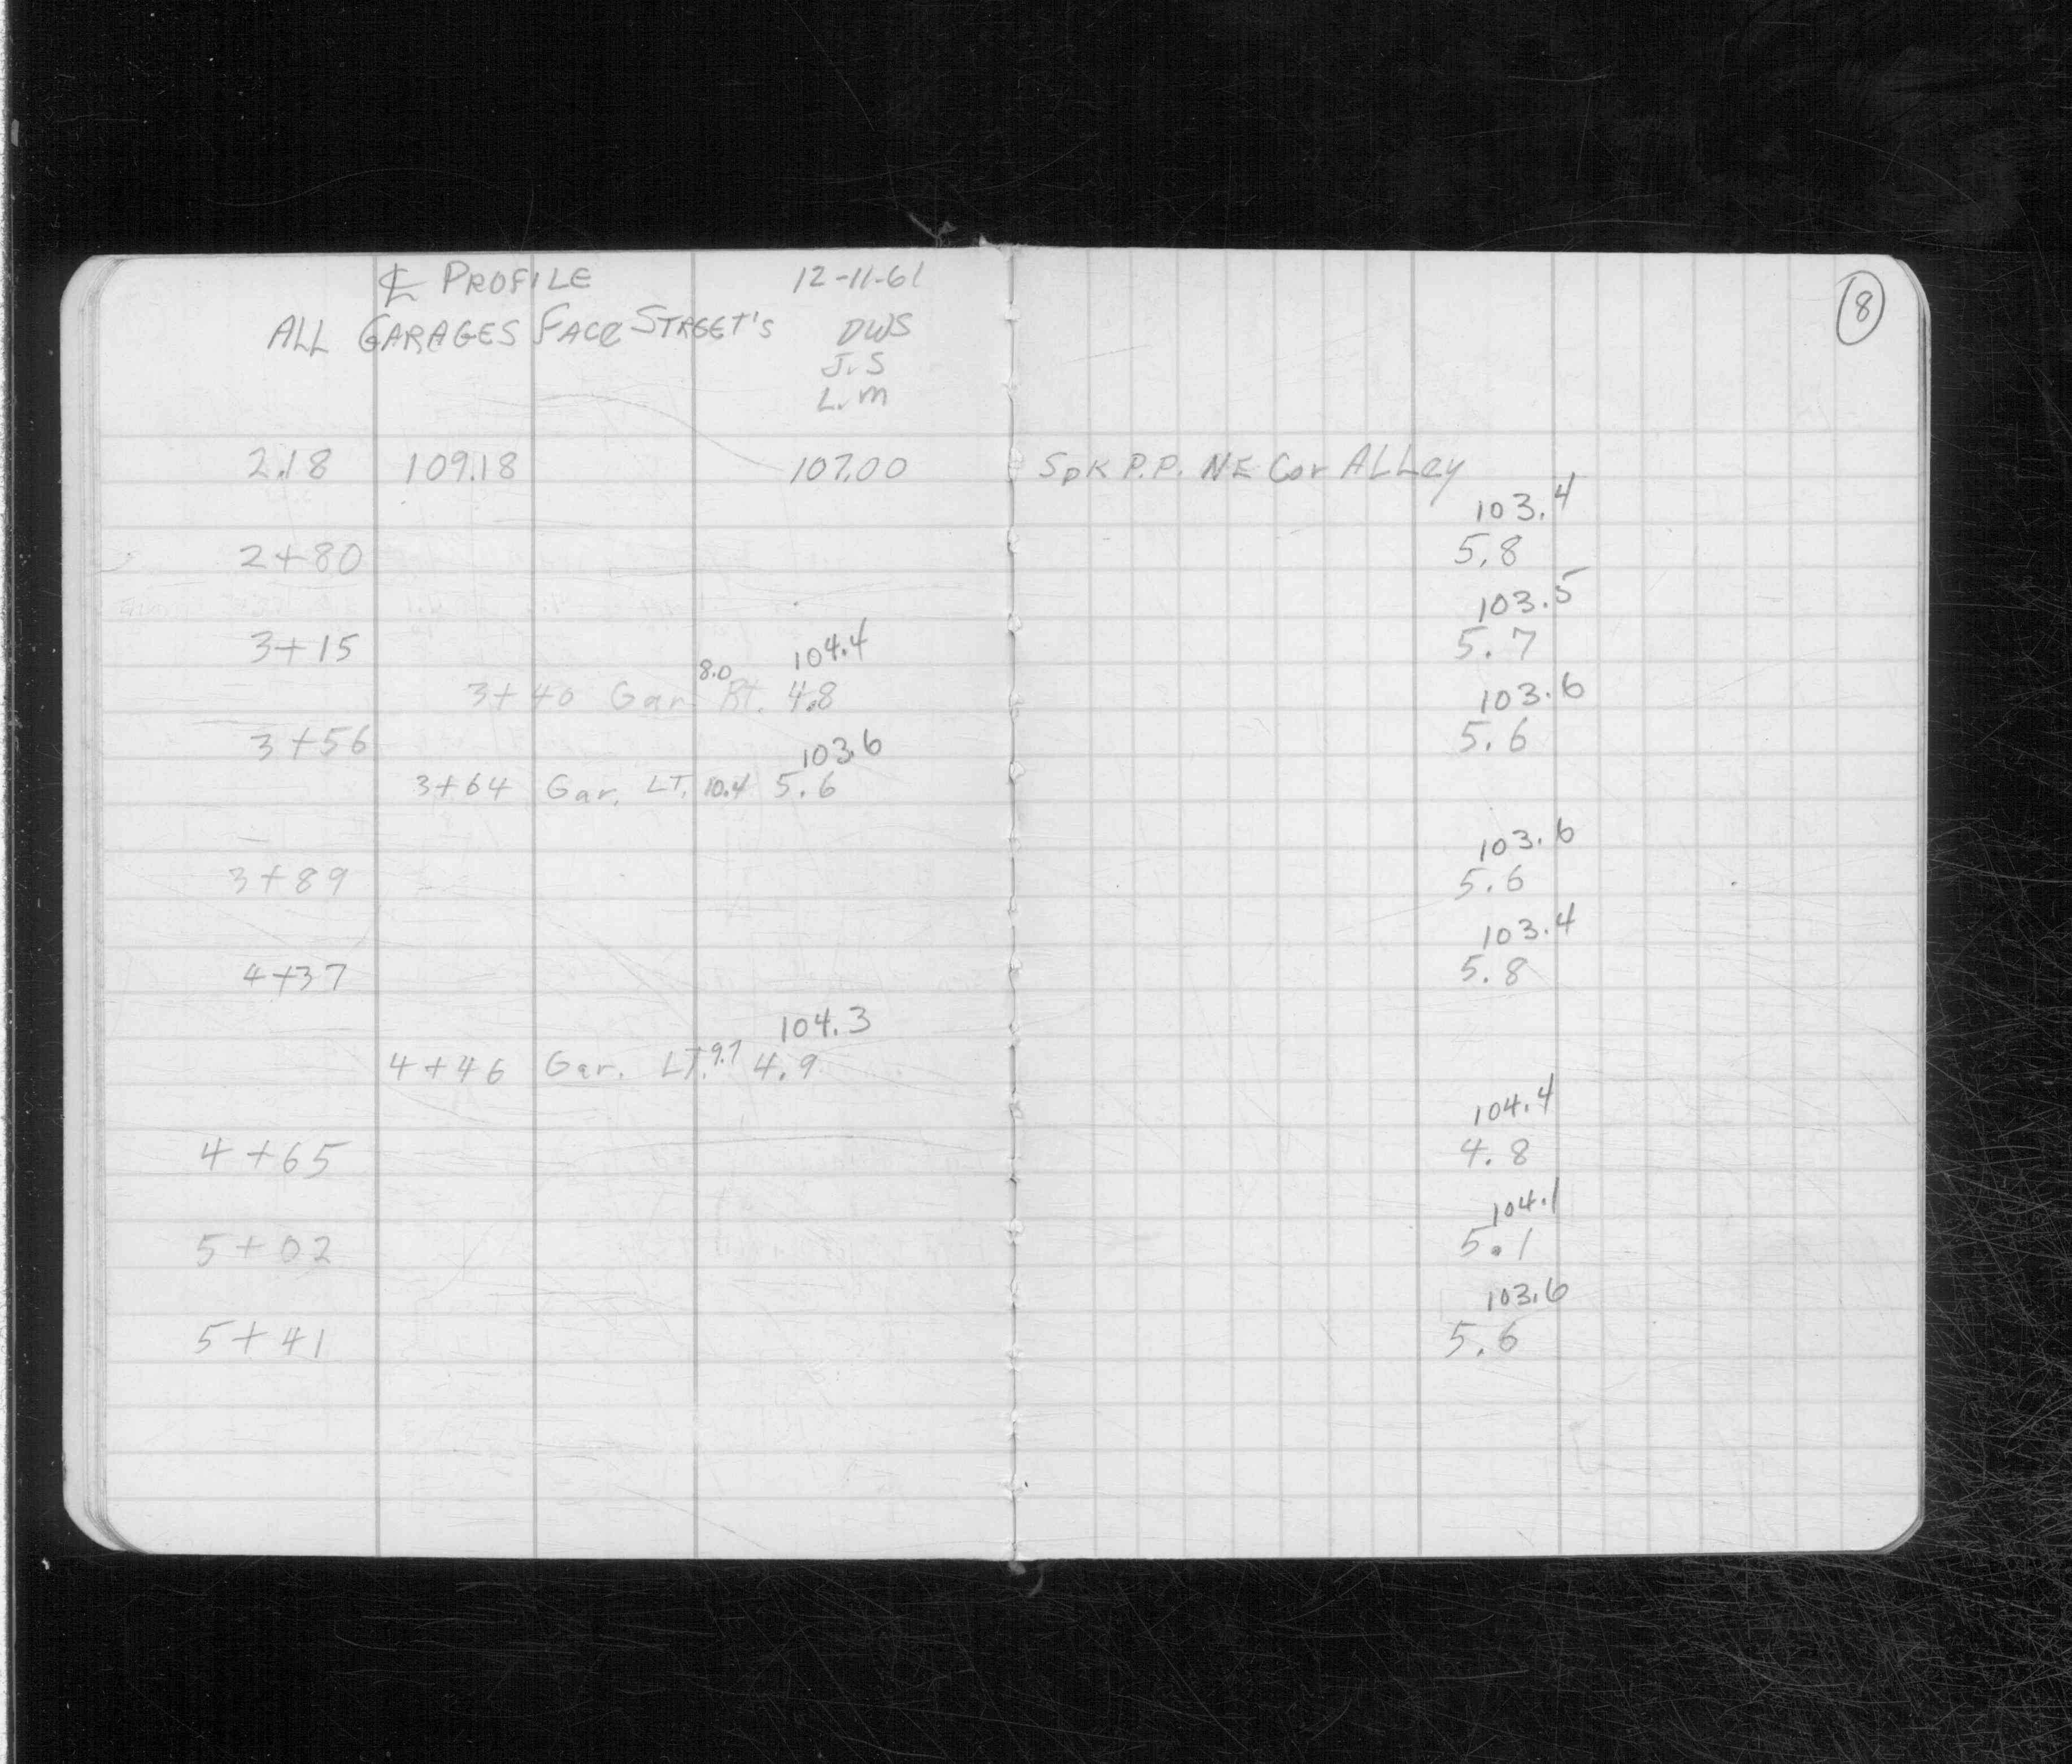 ℄ PROFILE 12-11-61
ALL GARAGES FACE STREET'S DWS
J.S
L.M
2.18 109.18 107.00 Spk P.P. NE Cor ALLey
103.4
2+80 5.8
103.5
3+15 5.7
104.4
3+40 Gar. Rt. 8.0 4.8
103.6
3+56 5.6
103.6
3+64 Gar. LT. 10.4 5.6
103.6
3+89 5.6
103.4
4+37 5.8
104.3
4+46 Gar. LT. 9.7 4.9
104.4
4+65 4.8
104.1
5+02 5.1
103.6
5+41 5.6
8